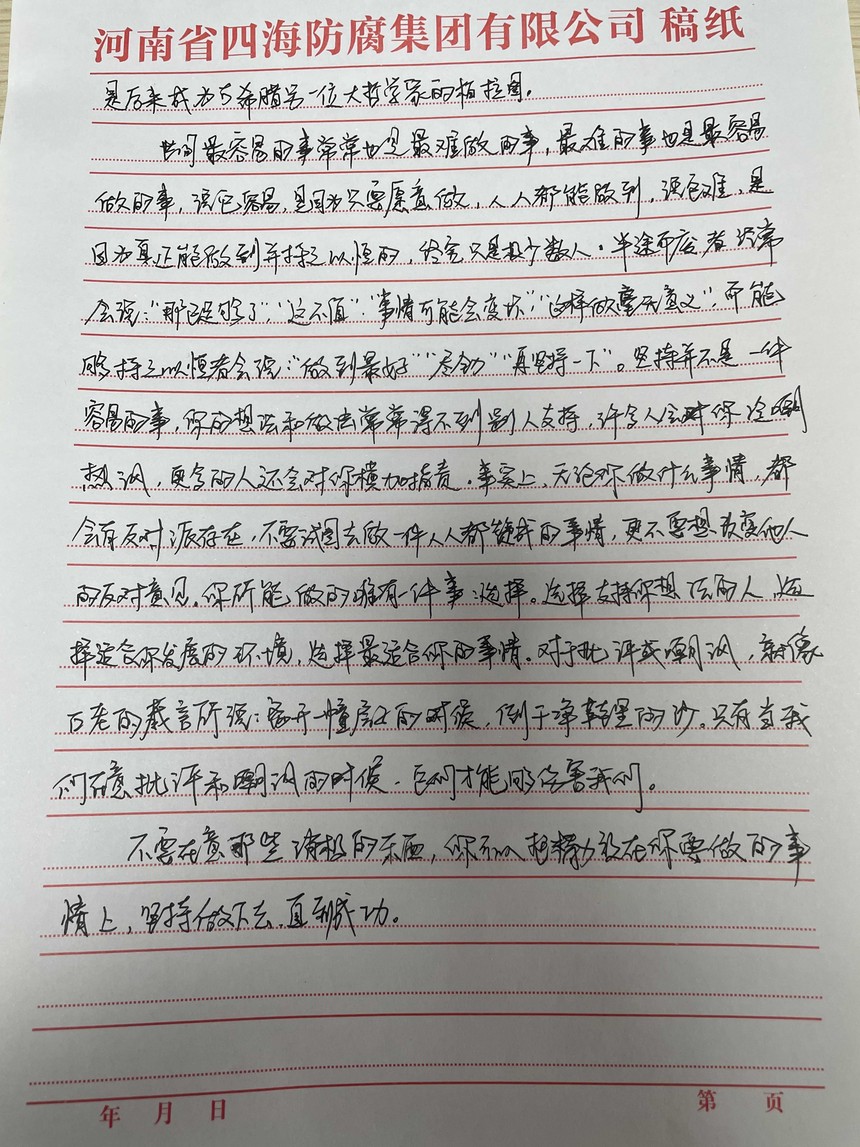 河南省四海防腐集团有限公司 稿纸
是后来成为古希腊另一位大哲学家的柏拉图。
世间最容易的事常常也是最难做的事，最难的事也是最容易
做的事，说它容易，是因为只要愿意做，人人都能做到，说它难，是
因为真正能做到并持之以恒的，终究只是极少数人。半途而废者经常
会说："那已足够了""这不值""事情可能会变坏""这样做毫无意义"，而能
够持之以恒者会说："做到最好""尽全力""再坚持一下"。坚持并不是一件
容易的事，你的想法和做出常常得不到别人支持，许多人会对你冷嘲
热讽，更多的人还会对你横加指责。事实上，无论你做什么事情，都
会有反对派存在，不要试图去做一件人人都 的事情，更不要想改变他人
的反对意见。你所能做的唯有一件事：选择。选择支持你想法的人，选
择适合你发展的环境，选择最适合你的事情。对于批评或嘲讽，就像
古老的箴言所说： 开一幢 的时候，倒干净鞋里的沙。只有当我
们在意批评和嘲讽的时候，它们才能够伤害我们。
不要在意那些消极的东西，你可以把精力放在你要做的事
情上，坚持做下去，直到成功。
年 月 日
第 页